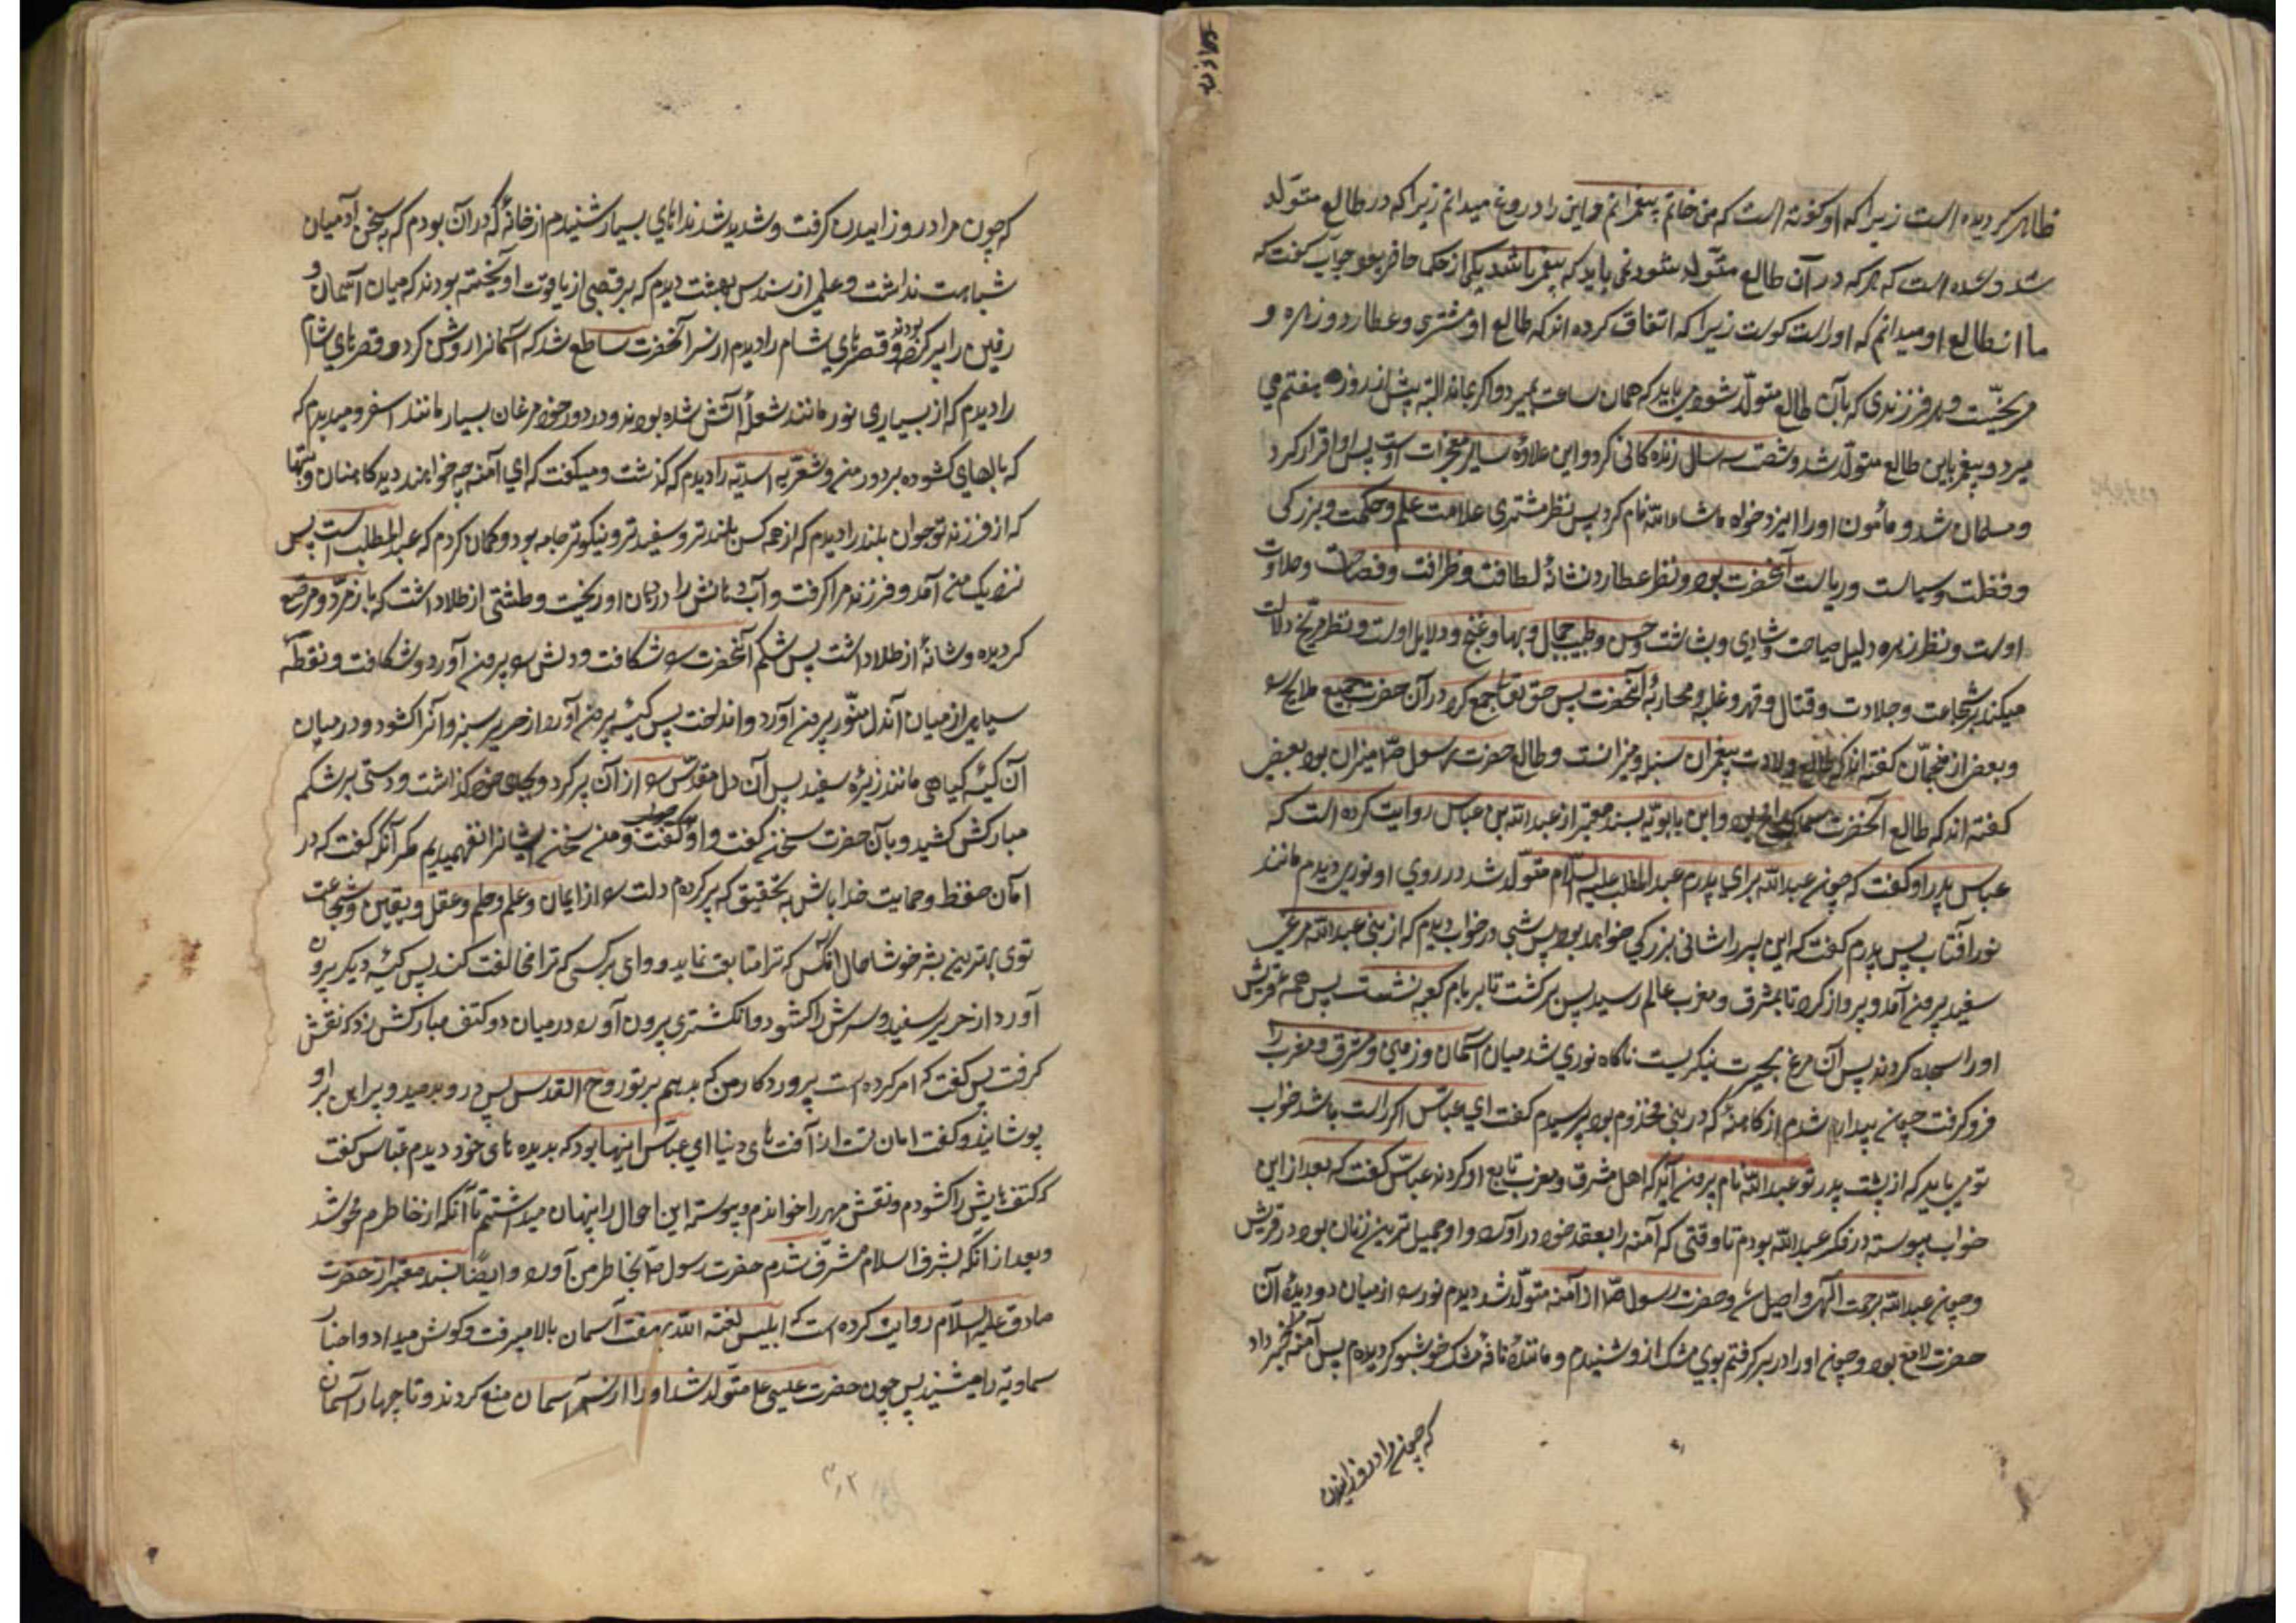 ظاهر کردیده است زیرا که او کفته است که من خاتم پیغمبرانم و این را دروغ میدانم زیرا که در طالع متولد
شد و شده است که هر که در آن طالع متولد شود نمی باید که پیغمبر باشد یکی از حکما حاضر بود جواب کفت که
ما از طالع او میدانیم که او راست کوست زیرا که اتفاق کرده اند که طالع او مشتری و عطارد و زهره و
مریخست و هر فرزندی که بآن طالع متولد شود می باید که همان ساعت بمیرد و اکر بماند البته پیش از روز هفتم می
میرد و پیغمبر باین طالع متولد شد و شصت سه سال زنده کانی کرد و این علاوه سایر معجزات اوست پس او اقرار کرد
و مسلمان شد و مأمون او را ایزدخواه ماشاءالله نام کرد پس نظر مشتری علامت علم و حکمت و بزرکی
و فطنت و سیاست و ریاست آنحضرت بود و نظر عطارد نشانهٔ لطافت و ظرافت و فصاحت و حلاوت
اوست و نظر زهره دلیل صباحت و شادی و بشاشت و حسن و طیب و جمال و بها و غنج و دلال اوست و نظر مریخ دلالت
میکند بر شجاعت و جلادت و قتال و قهر و غلبه و محاربهٔ آنحضرت پس حق تعالی جمع کرد در آن حضرت جمیع مدایح را
و بعضی از منجمان کفته اند که طالع ولادت پیغمبران سنبله و میزانست و طالع حضرت رسول ص میزان بود و بعضی
کفته اند که طالع آنحضرت سماک رامح بود و ابن بابویه بسند معتبر از عبدالله بن عباس روایت کرده است که
عباس پدر او کفت که چون عبدالله برای پدرم عبدالمطلب علیه السلام متولد شد در روی او نوری دیدم مانند
نور آفتاب پس پدرم کفت که این پسر را شانی بزرکی خواهد بود پس شبی در خواب دیدم که از بینی عبدالله مرغی
سفید بیرون آمد و پرواز کرد تا بمشرق و مغرب عالم رسید پس برکشت تا بر بام کعبه نشست پس همه قریش
او را سجده کردند پس آن مرغ بحیرت نیکریست ناکاه نوری شد میان آسمان و زمین و مشرق و مغرب را
فرو کرفت چون بیدار شدم از کاهنهٔ که در بنی مخذوم بود پرسیدم کفت ای عباس اکر راست باشد خواب
تو می باید که از پشت پدر تو عبدالله نام بیرون آید که اهل مشرق و مغرب تابع او کردند عباس کفت که بعد از این
خواب پیوسته در فکر عبدالله بودم تا وقتی که آمنه را بعقد خود در آورد و او جمیل ترین زنان بود در قریش
و چون عبدالله برحمت الهی واصل شد و حضرت رسول ص از آمنه متولد شد دیدم نور را از میان دو دیدهٔ آن
حضرت لامع بود و چون او را در بر کرفتم بوی مشک از او شنیدم و مانند نافه مشک خوشبو کردیدم پس آمنه مرا خبر داد
که چون مرا درد زائیدن
که چون مرا درد زاییدن کرفت و شدید شد نداهای بسیار شنیدم از خانهٔ که در آن بودم که بسخن آدمیان
شباهت نداشت و علمی از سندس بهشت دیدم که بر قصبی از یاقوت آویخته بودند که میان آسمان و
زمین را پر کرده بودند و قصرهای شام را دیدم از سر آنحضرت ساطع شد که آسمانرا روشن کرد و قصرهای شام
را دیدم که از بسیاری نور مانند شعلهٔ آتش شده بودند و در دور خود مرغان بسیار مانند اسفرود میدیدم که
که بالهای کشوده بر دور من و شعریه اسدیه را دیدم که کذشت و میکفت که ای آمنه چه خواهند دید کاهنان و بتها
که از فرزند تو جوان بلند را دیدم که از همه کس بلندتر و سفیدتر و نیکوتر جامه بود و کمان کردم که عبدالمطلب است پس
نزدیک من آمد و فرزند مرا کرفت و آب دهانش را در دهان او ریخت و طشتی از طلا داشت که با زمرد و مرصع
کردیده و شانهٔ از طلا داشت پس شکم آنحضرت را شکافت و دلش را بیرون آورد و شکافت و نقطهٔ
سیاهی از میان آندل منور بیرون آورد و انداخت پس کیسهٔ بیرون آورد از حریر سبز و آنرا کشود و در میان
آن کیسه کیاهی مانند زیرهٔ سفید پس آن دل مقدس را از آن پر کرد و بجای خود کذاشت و دستی بر شکم
مبارکش کشید و بآن حضرت سخن کفت و او جواب کفت و من سخن ایشانرا نفهمیدم مکر آنکه کفت که در
امان حفظ و حمایت خدا باش به تحقیق که پر کردم دلت را از ایمان و علم و حلم و عقل و یقین و شجاعت
توی بهترین بشر خوشا حال آنکس که ترا متابعت نماید و وای بر کسی که ترا مخالفت کند پس کیسه دیکر بیرون
آورد از حریر سفید و سرش را کشود و انکشتری بیرون آورد در میان دو کتف مبارکش زد که نقش
کرفت پس کفت که امر کرده است پروردکار من که بدمم بر تو روح القدس پس در و بدمید و پیراهن بر او
پوشانید و کفت امان تست از آفت های دنیا ای عباس اینها بود که بدیده های خود دیدم عباس کفت
که کتفهایش را کشودم و نقش مهر را خواندم و پیوسته این احوال را پنهان میداشتم تا آنکه از خاطرم محو شد
و بعد از آنکه بشرف اسلام مشرف شدم حضرت رسول ص بخاطر من آورد و ایضا بسند معتبر از حضرت
صادق علیه السلام روایت کرده است که ابلیس لعنه الله بهفت آسمان بالا میرفت و کوش میداد و اخبار
سماویه را میشنید پس چون حضرت عیسی ع متولد شد او را از سه آسمان منع کردند و تا چهار آسمان